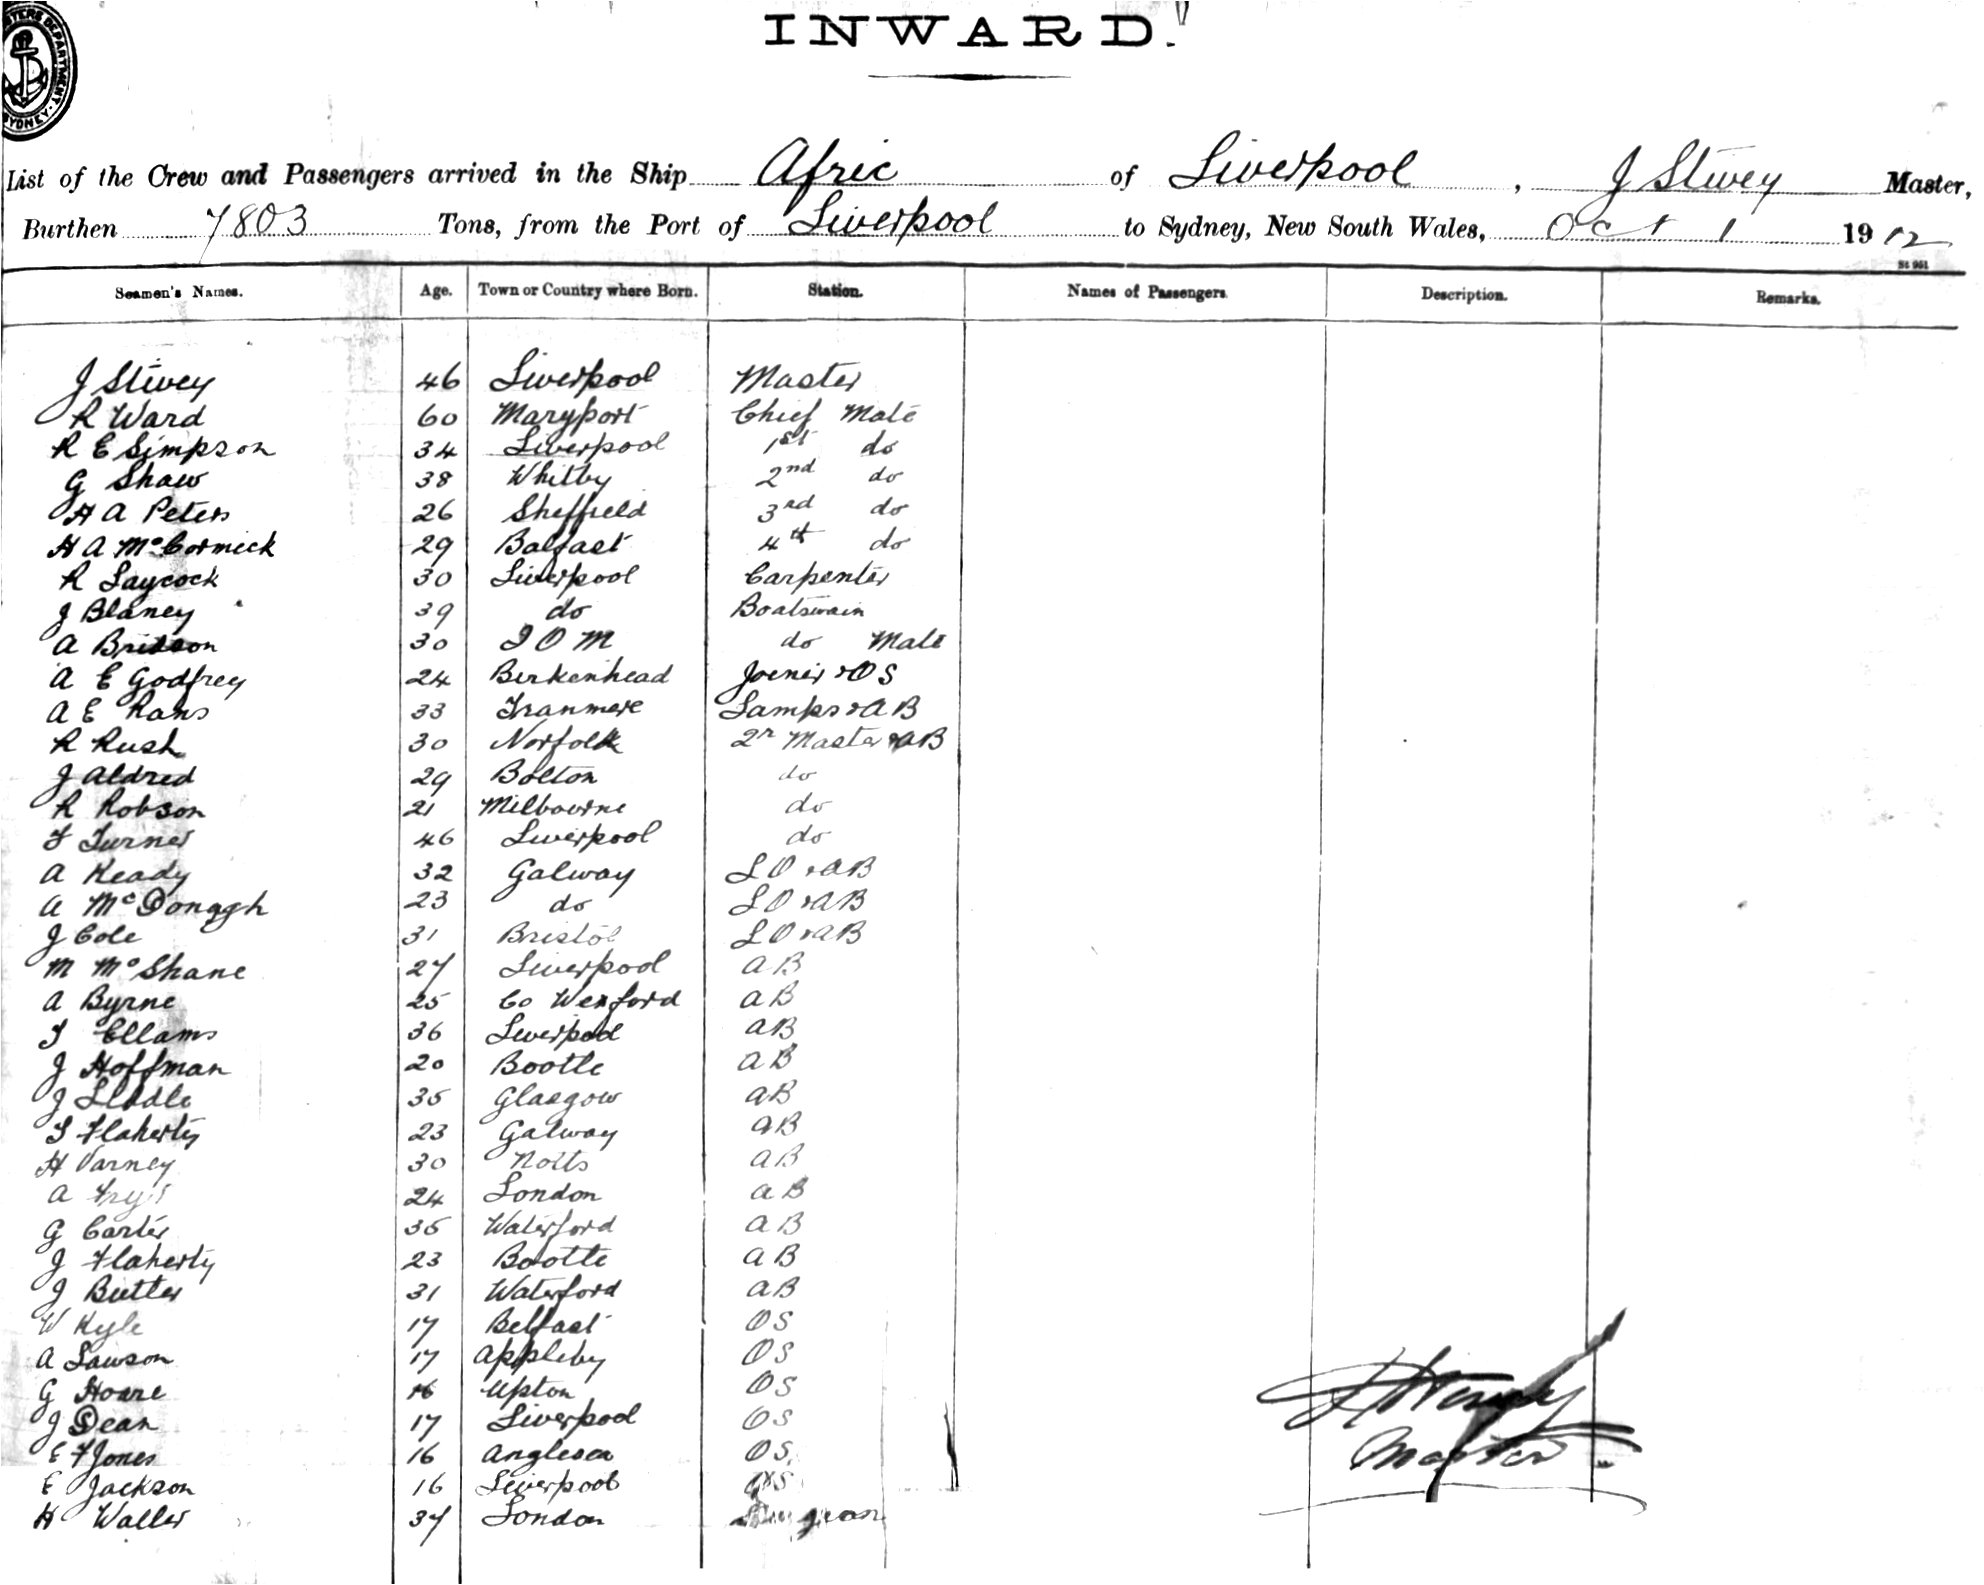 INWARD.
MASTERS DEPARTMENT. SYDNEY.
List of the Crew and Passengers arrived in the Ship Afric of Liverpool, J Stivey Master,
Burthen 7803 Tons, from the Port of Liverpool to Sydney, New South Wales, Oct 1 1912
St 951
Seamen's Names. Age. Town or Country where Born. Station. Names of Passengers. Description. Remarks.
J Stivey 46 Liverpool Master
R Ward 60 Maryport Chief Mate
R E Simpson 34 Liverpool 1st do
G Shaw 38 Whitby 2nd do
H A Peters 26 Sheffield 3rd do
H A McCormick 29 Balfast 4th do
R Laycock 30 Liverpool Carpenter
J Blaney 39 do Boatswain
A Bridson 30 I O M do Mate
A E Godfrey 24 Berkenhead Joener & OS
A E Rans 33 Tranmere Lamps & AB
R Rush 30 Norfolk 2r Master & AB
J Aldred 29 Bolton do
R Robson 21 Milbourne do
F Turner 46 Liverpool do
A Keady 32 Galway L O & AB
A McDonagh 23 do L O & AB
J Cole 31 Bristol L O & AB
M McShane 27 Liverpool AB
A Byrne 25 Co Wexford AB
T Ellams 36 Liverpool AB
J Hoffman 20 Bootle AB
J Liddle 35 Glasgow AB
T Flaherty 23 Galway AB
H Varney 30 Notts AB
A 24 London AB
G Carter 35 Waterford AB
J Flaherty 23 Bootle AB
J Butler 31 Waterford AB
W Kyle 17 Belfast OS
A Lawson 17 Appleby OS
G Hoare 16 Upton OS
J Dean 17 Liverpool OS
E F Jones 16 Anglesea OS
E Jackson 16 Liverpool OS
H Waller 37 London
J Stivey
Master